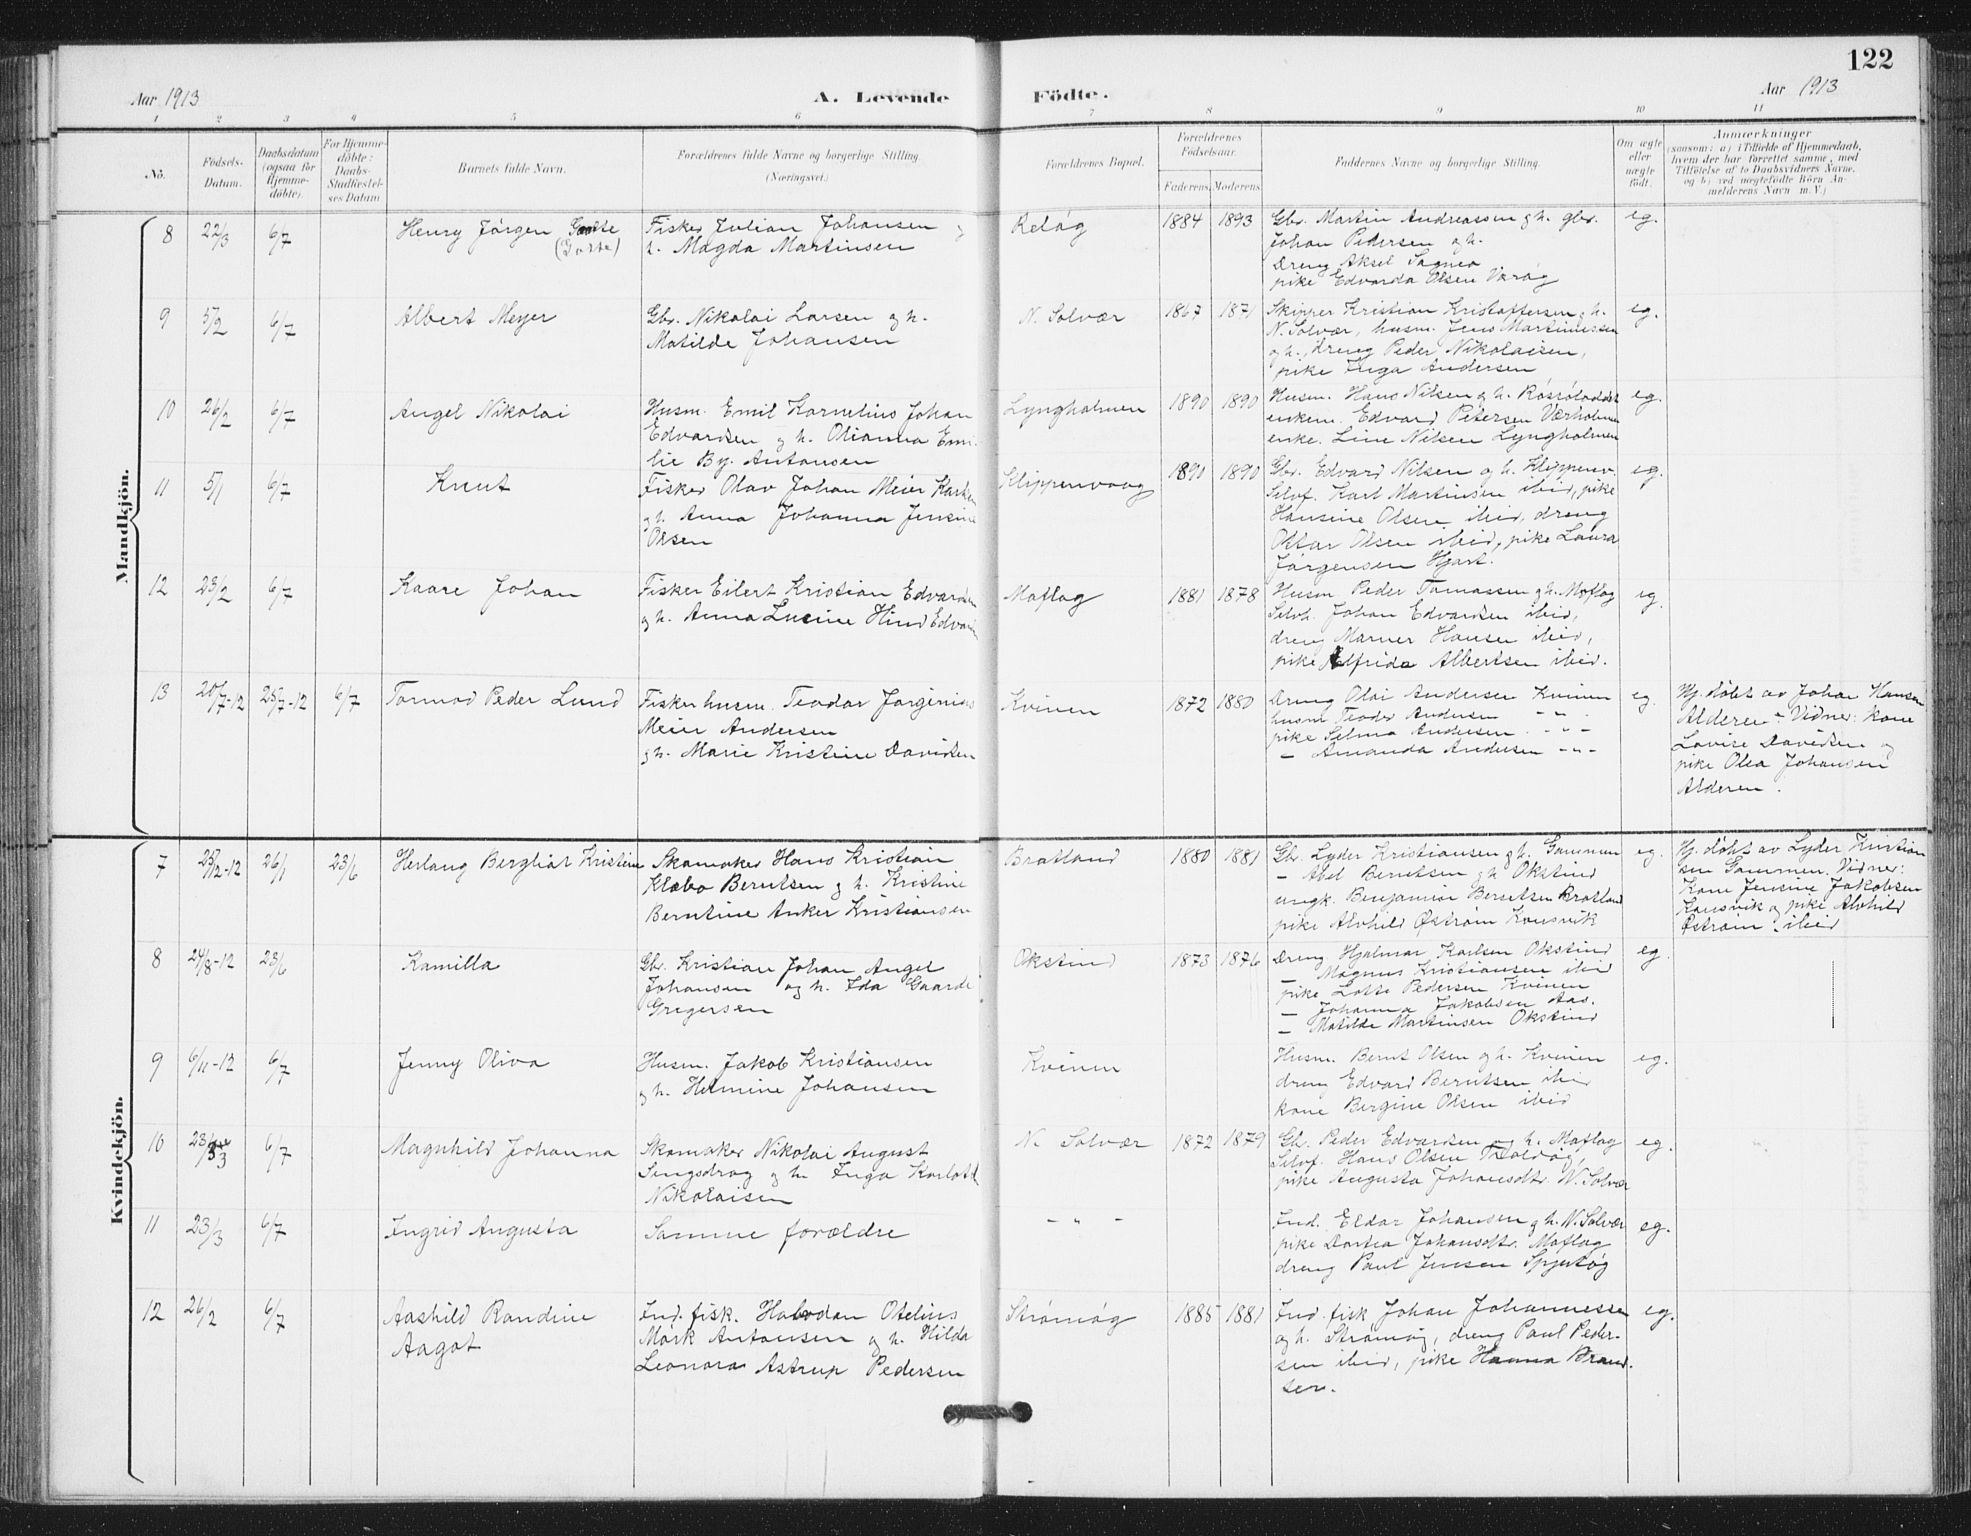 122
Aar 1913
A. Levende Födte.
Aar 1913
1 2 3 4 5 6 7 8 9 10 11
No.
Födsels-Datum.
Daabsdatum (ogsaa for Hjemme-döbte).
For Hjemme-döbte: Daabs-Stadfæstel-ses Datum
Barnets fulde Navn.
Forældrenes fulde Navne og borgerlige Stilling.
(Næringsvei.)
Forældrenes Bopæl.
Forældrenes Födselsaar.
Faderens. Moderens.
Faddernes Navne og borgerlig Stilling.
Om ægte eller uægte födt.
Anmærkninger
(saasom: a) i Tilfælde af Hjemmedaab,
hvem der har forrettet samme, med
Tilföielse af to Daabsvidners Navne,
og b) ved uægtefödte Börn An-
melderens Navn m. V.)
Mandkjön.
8 22/3 6/7 Henry Jörgen
Fisker Julian Johansen og
h. Magda Martinsen
Reløg 1884 1893
Gbr. Martin Andreassen og h. gbr.
Johan Pedersen og h.
Dreng Aksel Sagmo
pike Edvarda Olsen Varøg
eg.
9 5/2 6/7 Albert Meyer
Gbr. Nikolai Larsen og h.
Matilde Johansen
N. Solvær 1867 1871
Skipper Kristian Kristoffersen og h.
N. Solvær, husm. Jens Martinussen
og h., dreng Peder Nikolaisen,
pike Inga Andersen
eg.
10 26/2 6/7 Angel Nikolai
Husm. Emil Kornelius Johan
Edvardsen og h. Olianna Emi-
lie By. Antonsen
Lyngholmen 1890 1890
Husm. Hans Nilsen og h.
enkem. Edvard Petersen Værholmen
enke. Line Nilsen Lyngholmen
eg.
11 5/1 6/7 Knut
Fisker Olav Johan Meier Karlsen
og h. Anna Johanna Jensine
Olsen
Klippenvaag 1890 1890
Gbr. Edvard Nilsen og h. Klippenv.
Selvf. Karl Martinsen ibid, pike
Hansine Olsen ibid, dreng
Oktar Olsen ibid, pike Laura
Jørgensen Hjart.
eg.
12 23/2 6/7 Kaare Johan
Fisker Eilert Kristian Edvardsen
og h. Anna Lucine Hind Edvardsen
Moflag 1881 1878
Husm Peder Tomassen og h. Moflag
Selvf. Johan Edvardsen ibid,
dreng Marner Hansen ibid,
pike Alfrida Albertsen ibid.
eg.
13 20/7-12 25/7-12 6/7 Tormod Peder Lund
Fisker husm. Teodor Jørginius
Meier Andersen
og h. Marie Kristine Davidsen
Kvinen 1872 1880
Dreng Olai Andersen Kvinen
husm Teodor Andersen - " -
pike Selma Andersen - " -
- Amanda Andersen - " -
eg.
Hj. døbt av Johan Hansen
Alderen - Vidner: kone
Lovise Davidsen og
pike Olea Johansen
Alderen.
Kvindekjön.
7 25/12-12 26/1 23/6 Herlaug Bergliot Kristine
Skomaker Hans Kristian
Klæbo Berntsen og h. Kristine
Berntine Anker Kristiansen
Bratland 1880 1881
Gbr. Lyder Kristiansen og h. Gammen
- Abel Berntsen og h Okstind
ungk. Benjamin Berntsen Bratland
pike Alvhild Østrøm Konsvik
eg.
Hj. døbt av Lyder Kristian
sen Gammen. Vidner:
Kone Jensine Jakobsen
Konsvik og pike Alvhild
Østrøm ibid
8 24/8-12 23/6 Kamilla
Gbr. Kristian Johan Angel
Johansen og h. Ida Gaarde
Gregersen
Okstind 1873 1876
Dreng Hjalmar Karlsen Okstind
- Magnus Kristiansen ibid
pike Lotte Pedersen Kvinen
- Johanna Jakobsen Aas.
- Matilde Martinsen Okstind
eg.
9 6/11-12 6/7 Jenny Oliva
Husm. Jakob Kristiansen
og h. Helmine Johansen
Kvinen
Husm. Bernt Olsen og h. Kvinen
dreng Edvard Berntsen ibid
kone Bergine Olsen ibid
eg.
10 23/3 6/7 Magnhild Johanna
Skomaker Nikolai August
Lingsdrag og h. Inga Karlotte
Nikolaisen
N. Solvær 1872 1879
Gb. Peder Edvardsen og h. Moflag
Selvf. Hans Olsen
pike Augusta Johansdtr. N. Solvær
eg.
11 23/3 6/7 Ingrid Augusta
Samme forældre
- " -
Ind. Eldar Johansen og h. N. Solvær
pike Dortea Johansdtr. Moflag
dreng Paul Jensen Spjutøg
eg.
12 26/2 6/7 Aashild Randine
Aagot
Ind. fisk. Halvdan Otelius
Mørk Antonsen og h. Hilda
Leonora Astrup Pedersen
Strømøg 1885 1881
Ind. fisk Johan Johannessen
og h. Strømøg, dreng Paul Peder-
sen ibid, pike Hanna Brand-
ser.
eg.